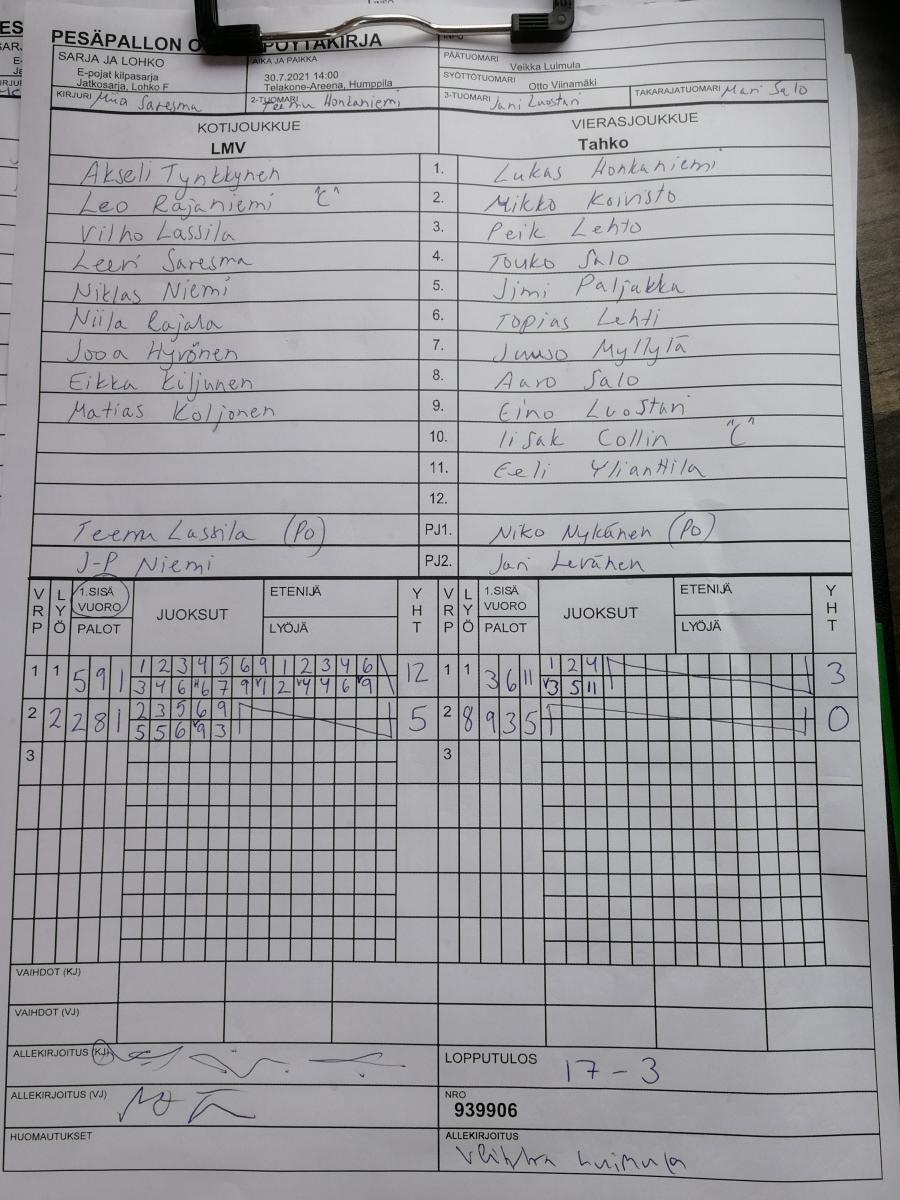 PESÄPALLON O PÖYTÄKIRJA
SARJA JA LOHKO
E-pojat kilpasarja
Jatkosarja, Lohko F
AIKA JA PAIKKA
30.7.2021 14:00
Telakone-Areena, Humppila
INFO
PÄÄTUOMARI Veikka Luimula
SYÖTTÖTUOMARI Otto Viinamäki
KIRJURI Miia Saresma
2-TUOMARI Teemu Honkaniemi
3-TUOMARI Jani Luostari
TAKARAJATUOMARI Mari Salo
KOTIJOUKKUE VIERASJOUKKUE
LMV Tahko
Akseli Tynkkynen 1. Lukas Honkaniemi
Leo Rajaniemi "C" 2. Mikko Koivisto
Vilho Lassila 3. Peik Lehto
Leevi Saresma 4. Touko Salo
Niklas Niemi 5. Jimi Paljakka
Niila Rajala 6. Topias Lehti
Jooa Hyrönen 7. Juuso Myllylä
Eikka Kiljunen 8. Aaro Salo
Matias Koljonen 9. Eino Luostari
10. Iisak Collin "C"
11. Eeli Ylianttila
12.
Teemu Lassila (PO) PJ1. Niko Nykänen (PO)
J-P Niemi PJ2. Jari Levänen
VRP LYÖ 1.SISÄ VUORO PALOT JUOKSUT ETENIJÄ LYÖJÄ YHT VRP LYÖ 1.SISÄ VUORO PALOT JUOKSUT ETENIJÄ LYÖJÄ YHT
1 1 5 9 1 1 2 3 4 5 6 9 1 2 3 4 6 12 1 1 3 6 11 1 2 4 3
3 4 6 6 7 9 1 2 4 4 6 9 3 5 11
2 2 2 8 1 2 3 5 6 9 5 2 8 9 3 5 0
5 5 6 9 3
3 3
VAIHDOT (KJ)
VAIHDOT (VJ)
ALLEKIRJOITUS (KJ)
LOPPUTULOS 17 - 3
ALLEKIRJOITUS (VJ)
NRO
939906
HUOMAUTUKSET
ALLEKIRJOITUS
Veikka Luimula